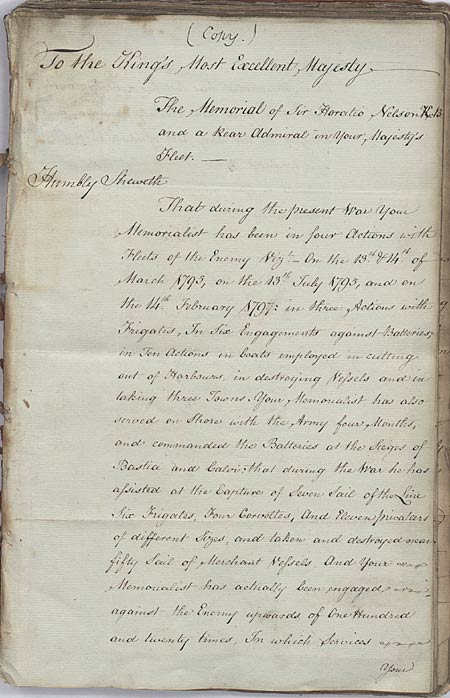 (Copy.)
To the King's Most Excellent Majesty
The Memorial of Sir Horatio Nelson K.B.
and a Rear Admiral in Your Majesty's
Fleet. —
Humbly Sheweth
That during the present War Your
Memorialist has been in four Actions with
Fleets of the Enemy Vizt. — On the 13th. & 14th. of
March 1795, on the 13th July 1795, and on
the 14th. February 1797: in three Actions with
Frigates, In Six Engagements against Batteries;
in Ten Actions in boats employed in cutting
out of Harbours, in destroying Vessels and in
taking three Towns. Your Memorialist has also
served on Shore with the Army four Months,
and commanded the Batteries at the Sieges of
Bastia and Calvi: that during the War he has
assisted at the Capture of Seven Sail of the Line
Six Frigates, Four Corvettes, And Eleven Privateers
of different Sizes, and taken and destroyed near
fifty Sail of Merchant Vessels. And Your
Memorialist has actually been engaged
against the Enemy upwards of One Hundred
and twenty times, In which Services
Your